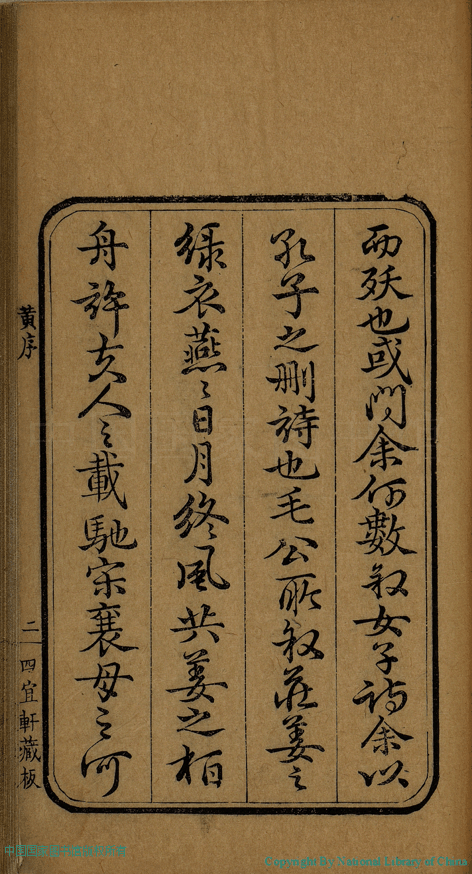 而殀也或問余何數叙女子詩余以
孔子之刪詩也毛公所叙莊姜之
綠衣燕〻日月終風共姜之柏
舟許夫人之載馳宋襄母之河
黃序
二
四宜軒藏板
Copyright By National Library of China